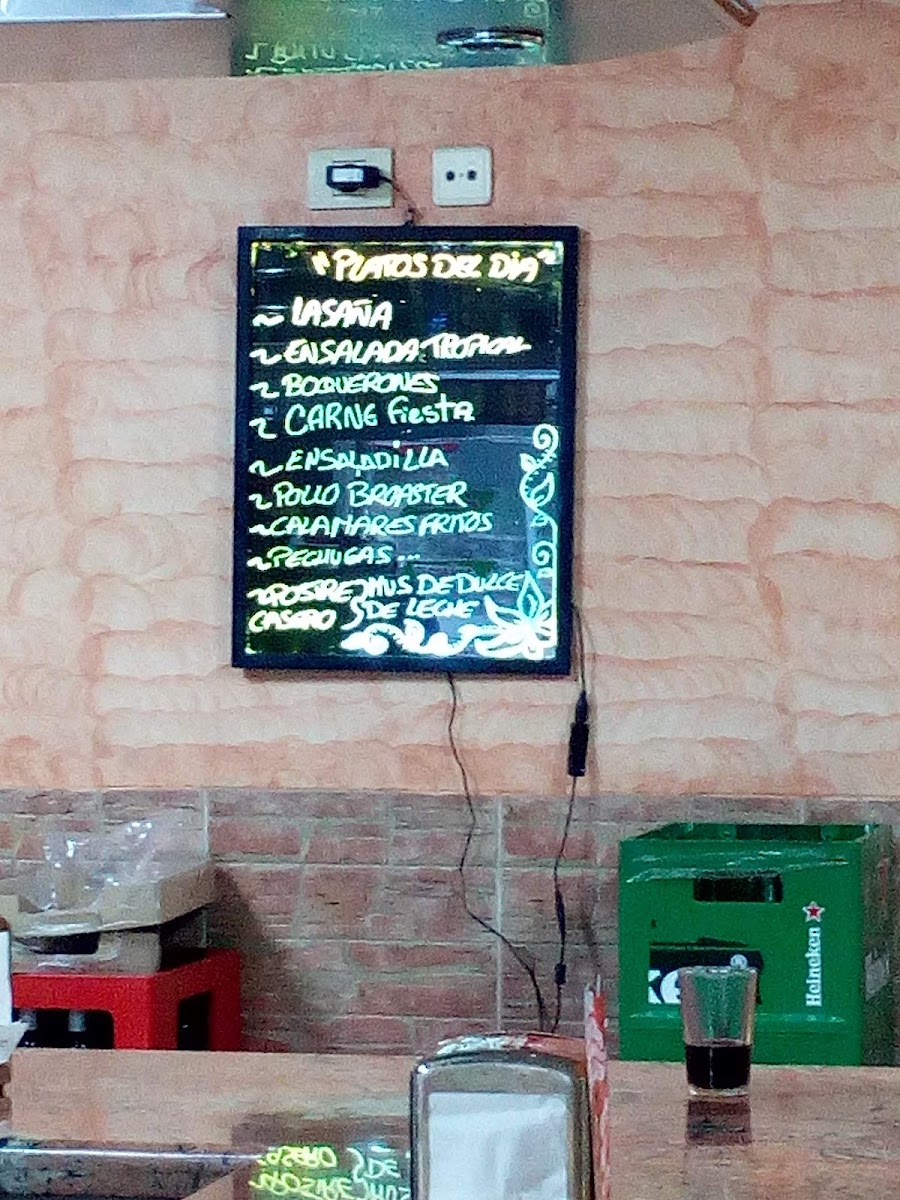 "PLATOS DEL DIA"
~ LASAÑA
~ ENSALADA TROPICAL
~ BOQUERONES
~ CARNE fiesta
~ ENSALADILLA
~ POLLO BROASTER
~ CALAMARES FRITOS
~ PECHUGAS...
~ POSTRE } MUS DE DULCE
CASERO } DE LECHE
Heineken